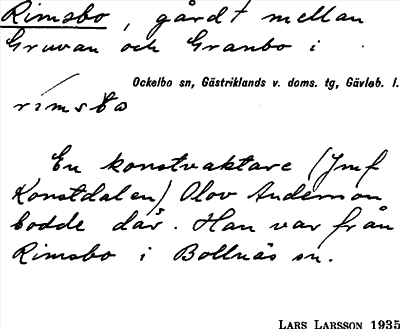 Rimsbo, gård † mellan
Gruvan och Granbo i
Ockelbo sn, Gästriklands v. doms. tg, Gävleb. l.
rímsbo
En konstvaktare (Jmf
Konstdalen) Olov Anderson
bodde där. Han var från
Rimsbo i Bollnäs sn.
LARS LARSSON 1935